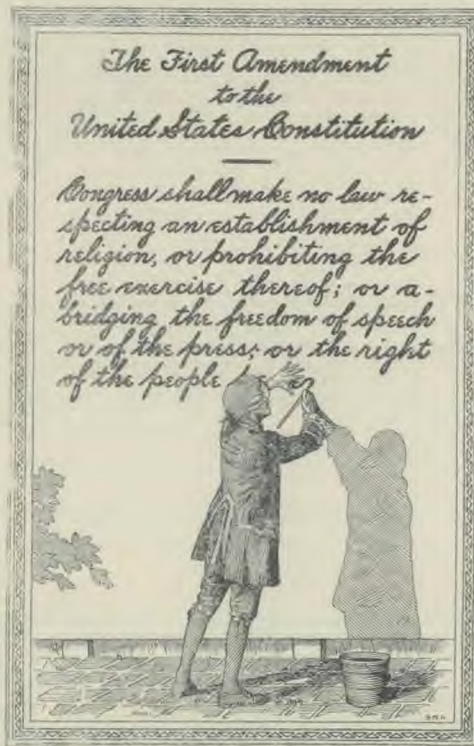 The First Amendment
to the
United States Constitution
Congress shall make no law re-
specting an establishment of
religion, or prohibiting the
free exercise thereof; or a-
bridging the freedom of speech
or of the press; or the right
of the people